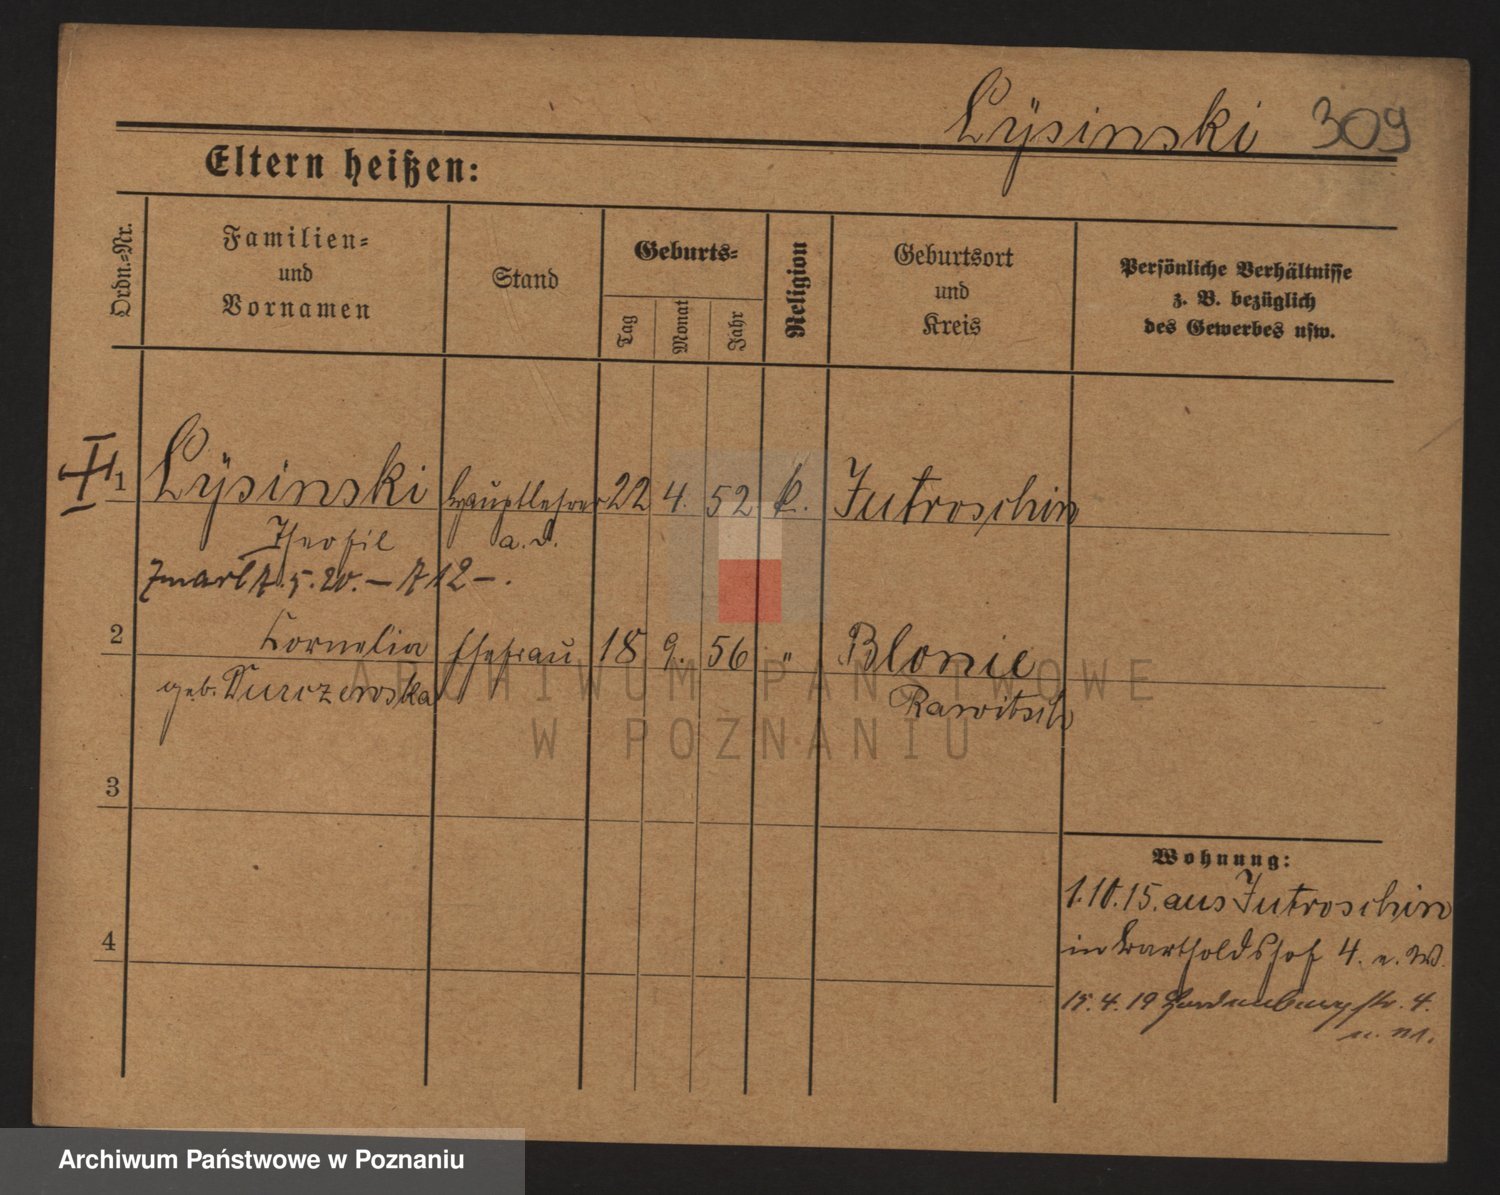 Lÿsinski 309
Eltern heißen:
Ordn.-Nr.
Familien-
und
Vornamen
Stand
Geburts-
Tag
Monat
Jahr
Religion
Geburtsort
und
Kreis
Persönliche Verhältnisse
z. B. bezüglich
des Gewerbes usw.
1 Lÿsinski Hauptlehrer 22 4. 52 k. Jutroschin
Theofil a. D.
zmarł 7.5.20. –
2 Cornelia Ehefrau 18 9. 56 " Blonie
geb. Rawitsch
3
4
Wohnung:
1.10.15. aus Jutroschin
in Bartholdshof 4. e. W.
15.4.19 4.
ARCHIWUM PAŃSTWOWE
W POZNANIU
Archiwum Państwowe w Poznaniu